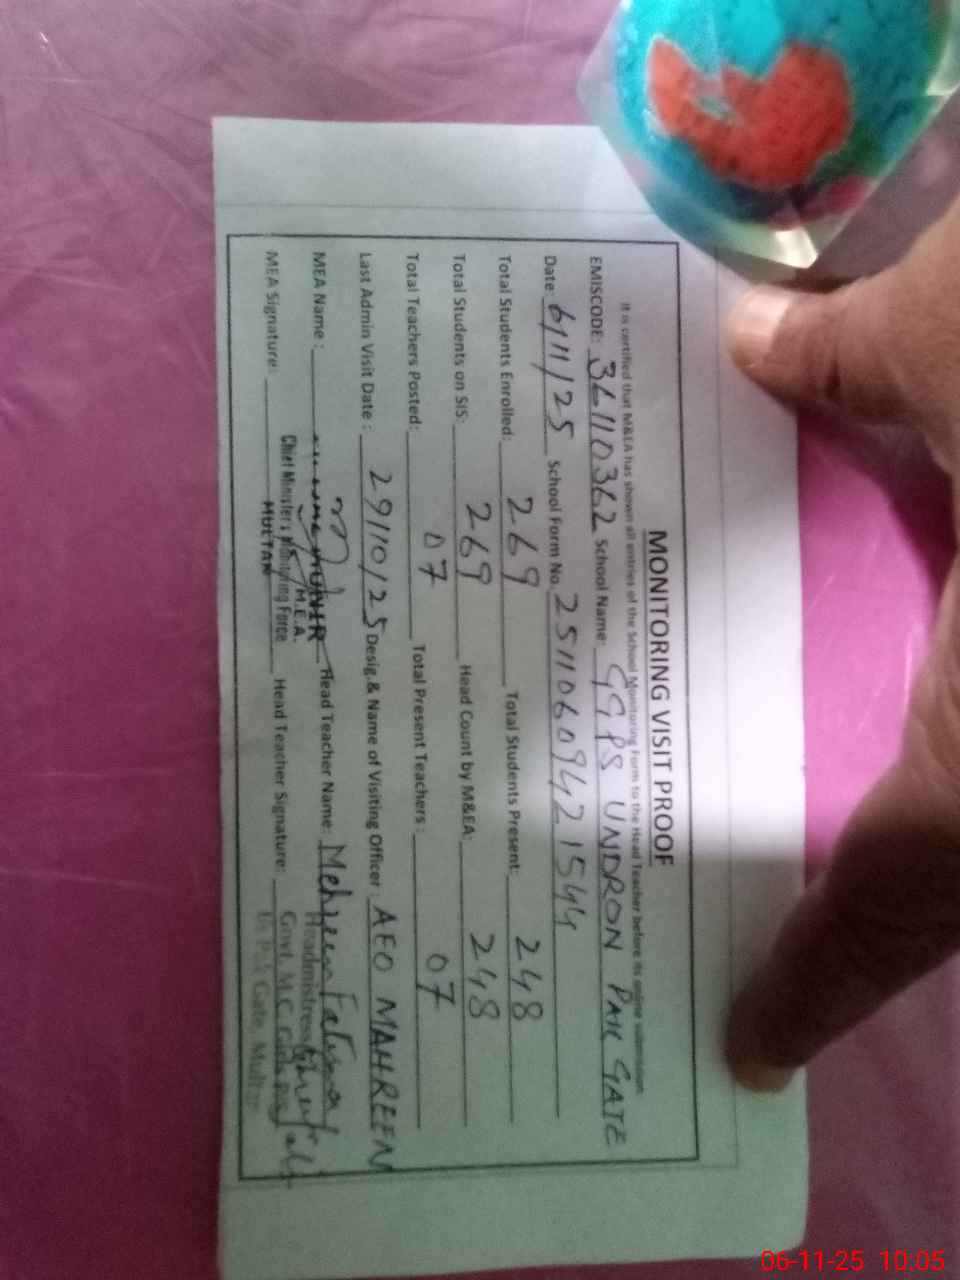 MONITORING VISIT PROOF
It is certified that M&EA has shown all entries of the School Monitoring Form to the Head Teacher before its online submission
EMISCODE: 36110362 School Name: GGPS UNDRON PAK GATE
Date: 6/11/25 School Form No. 25110609421544
Total Students Enrolled: 269 Total Students Present: 248
Total Students on SIS: 269 Head Count by M&EA: 248
Total Teachers Posted: 07 Total Present Teachers : 07
Last Admin Visit Date : 29/10/25 Desig.& Name of Visiting Officer : AEO MAHREEN
MEA Name : MUNIR Head Teacher Name: Mehreen Fatima
M.E.A. Headmistress
MEA Signature: Chief Minister's Monitoring Force Head Teacher Signature: Govt. M.C. Girls
MULTAN Pak Gate, Multan
06-11-25 10:05